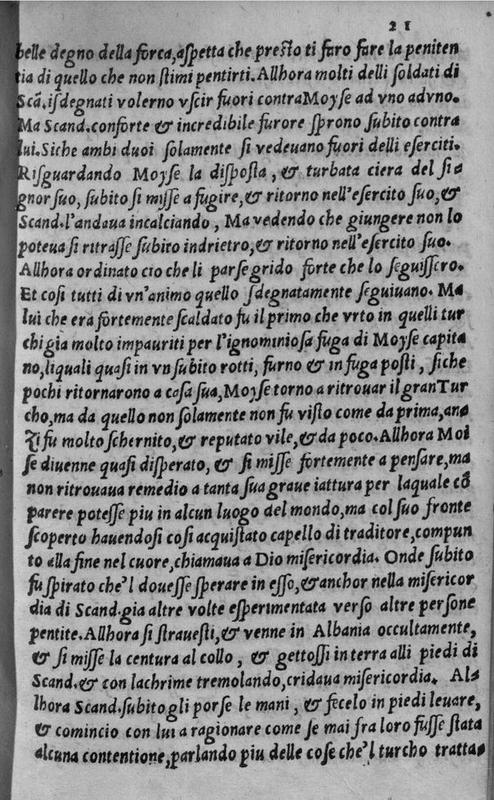 21
belle degno della forca, aspetta che presto ti faro fare la peniten
tia di quello che non stimi pentirti. Allhora molti delli soldati di
Scã. isdegnati volerno vscir fuori contra Moyse ad vno ad vno.
Ma Scand. conforte & incredibile furore sprono subito contra
lui. Siche ambi duoi solamente si vedeuano fuori delli eserciti.
Risguardando Moyse la disposta, & turbata ciera del si=
gnor suo, subito si misse a fugire, & ritorno nell'esercito suo, &
Scand. l'andaua incalciando, Ma vedendo che giungere non lo
poteua si ritrasse subito indrietro, & ritorno nell'esercito suo.
Allhora ordinato cio che li parse grido forte che lo seguissero.
Et cosi tutti di vn'animo quello sdegnatamente seguiuano. Ma
lui che era fortemente scaldato fu il primo che vrto in quelli tur
chi gia molto impauriti per l'ignominiosa fuga di Moyse capita
no, liquali quasi in vn subito rotti, furno & in fuga posti, siche
pochi ritornarono a casa sua, Moyse torno a ritrouar il gran Tur
cho, ma da quello non solamente non fu visto come da prima, an=
zi fu molto schernito, & reputato vile, & da poco. Allhora Moi
se diuenne quasi disperato, & si misse fortemente a pensare, ma
non ritrouaua remedio a tanta sua graue iattura per laquale cõ
parere potesse piu in alcun luogo del mondo, ma col suo fronte
scoperto hauendosi cosi acquistato capello di traditore, compun
to alla fine nel cuore, chiamaua a Dio misericordia. Onde subito
fu spirato che'l douesse sperare in esso, & anchor nella misericor
dia di Scand. gia altre volte esperimentata verso altre persone
pentite. Allhora si strauesti, & venne in Albania occultamente,
& si misse la centura al collo, & gettossi in terra alli piedi di
Scand. & con lachrime tremolando, cridaua misericordia. Al=
lhora Scand. subito gli porse le mani, & fecelo in piedi leuare,
& comincio con lui a ragionare come se mai fra loro fusse stata
alcuna contentione, parlando piu delle cose che'l turcho tratta=